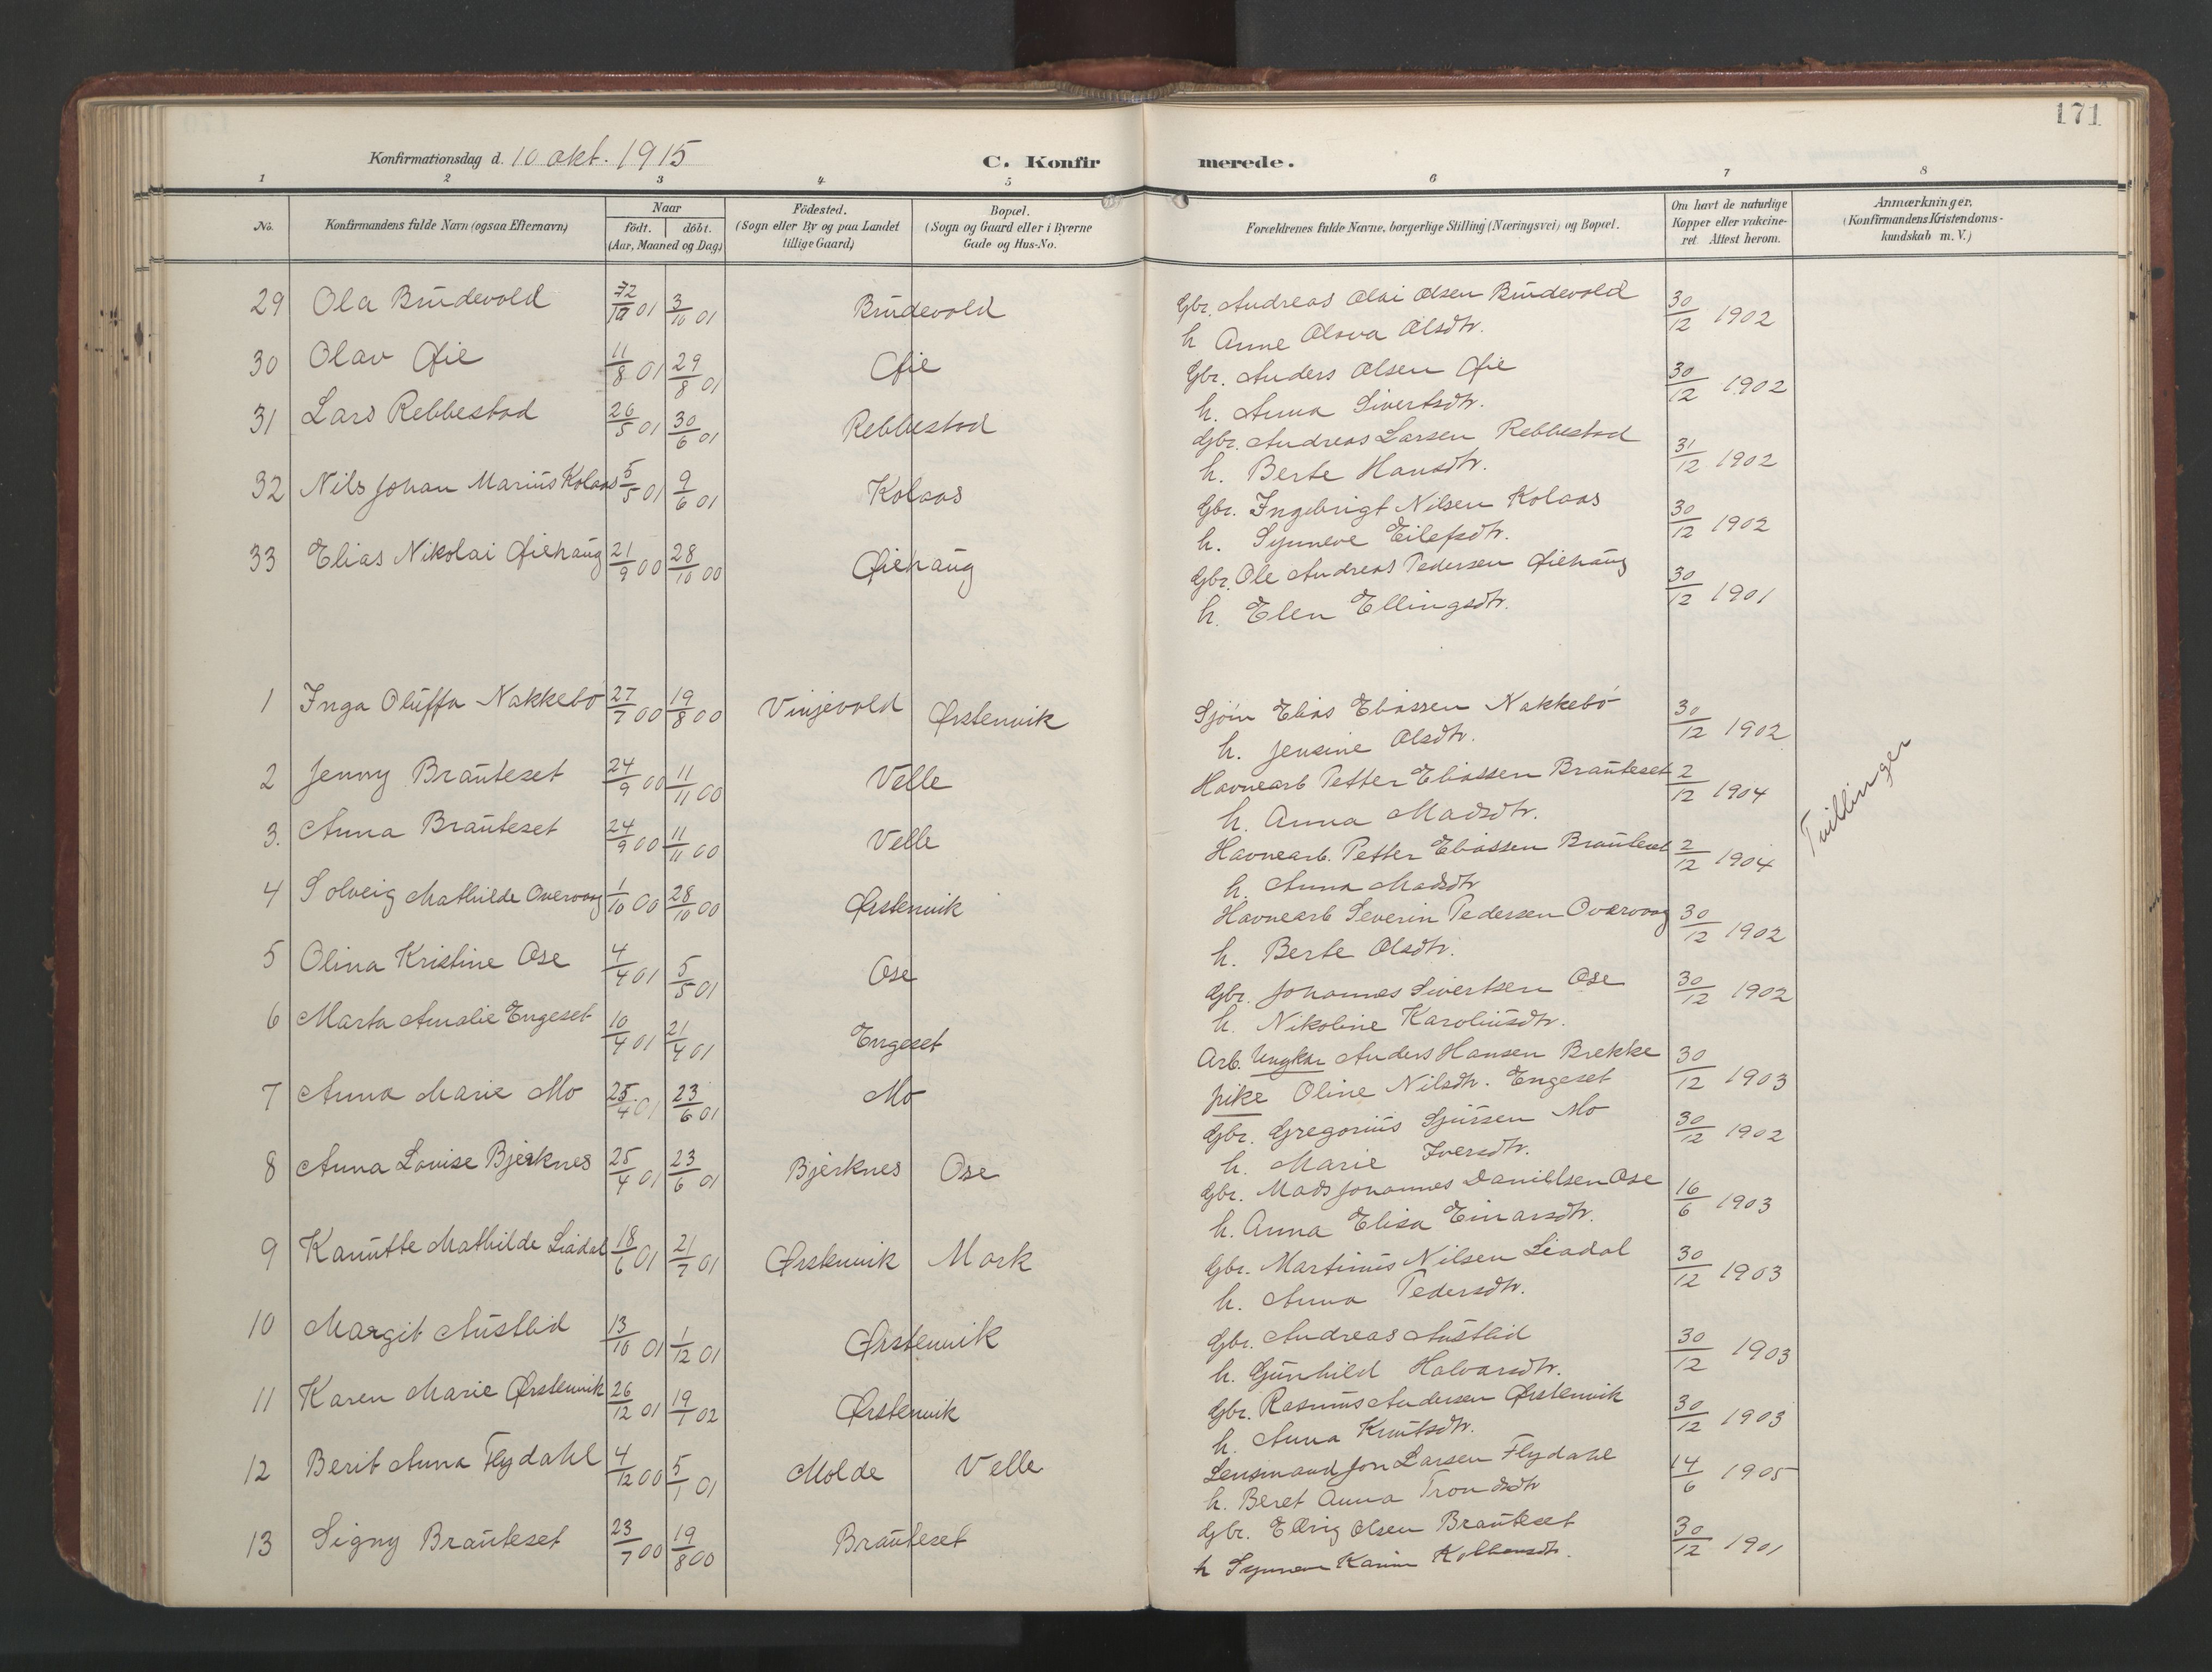 171
Konfirmationsdag d. 10 okt. 1915 C. Konfir merede.
1 2 3 4 5 6 7 8
No. Konfirmandens fulde Navn (ogsaa Efternavn) Naar födt. döbt. (Aar, Maaned og Dag) Födested. (Sogn eller By og paa Landet tillige Gaard) Bopæl. (Sogn og Gaard eller i Byerne Gade og Hus-No. Forældrenes fulde Navne, borgerlige Stilling (Næringsvei) og Bopæl. Om havt de naturlige Kopper eller vakcineret. Attest herom. Anmærkninger. (Konfirmandens Kristendomskundskab m. V.)
29 Ola Brudevold 01 3/10 01 Brudevold Gbr. Andreas Olai Olsen Brudevold 30/12 1902
h Anne Olava Olsdtr.
30 Olav Øie 11/8 01 29/8 01 Øie Gbr. Anders Olsen Øie 30/12 1902
h. Anna Sivertsdtr.
31 Lars Rebbestad 26/5 01 30/6 01 Rebbestad Gbr. Andreas Larsen Rebbestad 31/12 1902
h. Berte Hansdtr.
32 Nils Johan Marius Kolaas 5/5 01 9/6 01 Kolaas Gbr. Ingebrigt Nilsen Kolaas 30/12 1902
h. Synneve Eilefsdtr.
33 Elias Nikolai Øiehaug 21/9 00 28/10 00 Øiehaug Gbr. Ole Andreas Pedersen Øiehaug 30/12 1901
h. Elen Ellingsdtr.
1 Inga Oluffa Nakkebø 27/7 00 19/8 00 Vinjevold Ørstenvik Sjöm Elias Eliassen Nakkebö 30/12 1902
h. Jensine Olsdtr.
2 Jenny Brauteset 24/9 00 11/11 00 Velle Havnearb Petter Eliassen Brauteset 2/12 1904
h. Anna Madsdtr. Tvillinger
3. Anna Brauteset 24/9 00 11/11 00 Velle Havnearb. Petter Eliassen Brauteset 2/12 1904
h. Anna Madsdtr
4 Solveig Mathilde Overvaag 1/10 00 28/10 00 Ørstenvik Havnearb Severin Pedersen Overvaag 30/12 1902
h. Berte Olsdtr.
5 Olina Kristine Ose 4/4 01 5/5 01 Ose Gbr. Johannes Sivertsen Ose 30/12 1902
h. Nikoline Karoliusdtr.
6 Marta Amalie Engeset 10/4 01 21/4 01 Engeset Arb. Ungkar Anders Hansen Brekke 30/12 1903
pike Oline Nilsdtr. Engeset
7 Anna Marie Mo 25/4 01 23/6 01 Mo Gbr. Gregorius Sjursen Mo 30/12 1902
h. Marie Iversdtr.
8 Anna Lovise Bjerknes 25/4 01 23/6 01 Bjerknes Ose Gbr. Mads Johannes Danielsen Ose 16/6 1903
h. Anna Elisa Einarsdtr.
9 Kanutte Mathilde Liadal 18/6 01 21/7 01 Ørstenvik Mork Gbr. Martinus Nilsen Liadal 30/12 1903
h. Anna Pedersdtr.
10 Margit Austlid 13/10 01 1/12 01 Ørstenvik Gbr. Andreas Austlid 30/12 1903
h. Gunhild Halvarsdtr.
11 Karen Marie Ørstenvik 26/12 01 19/1 02 Ørstenvik Gbr. Rasmus Andersen Ørstenvik 30/12 1903
h. Anna Knutsdtr.
12 Berit Anna Flydahl 4/12 00 5/1 01 Molde Velle Lensmand Jon Larsen Flydahl 14/6 1905
h. Beret Anna Trondsdtr
13 Signy Brauteset 23/7 00 19/8 00 Brauteset Gbr. Ellvig Olsen Brauteset 30/12 1901
h Synneve Karine